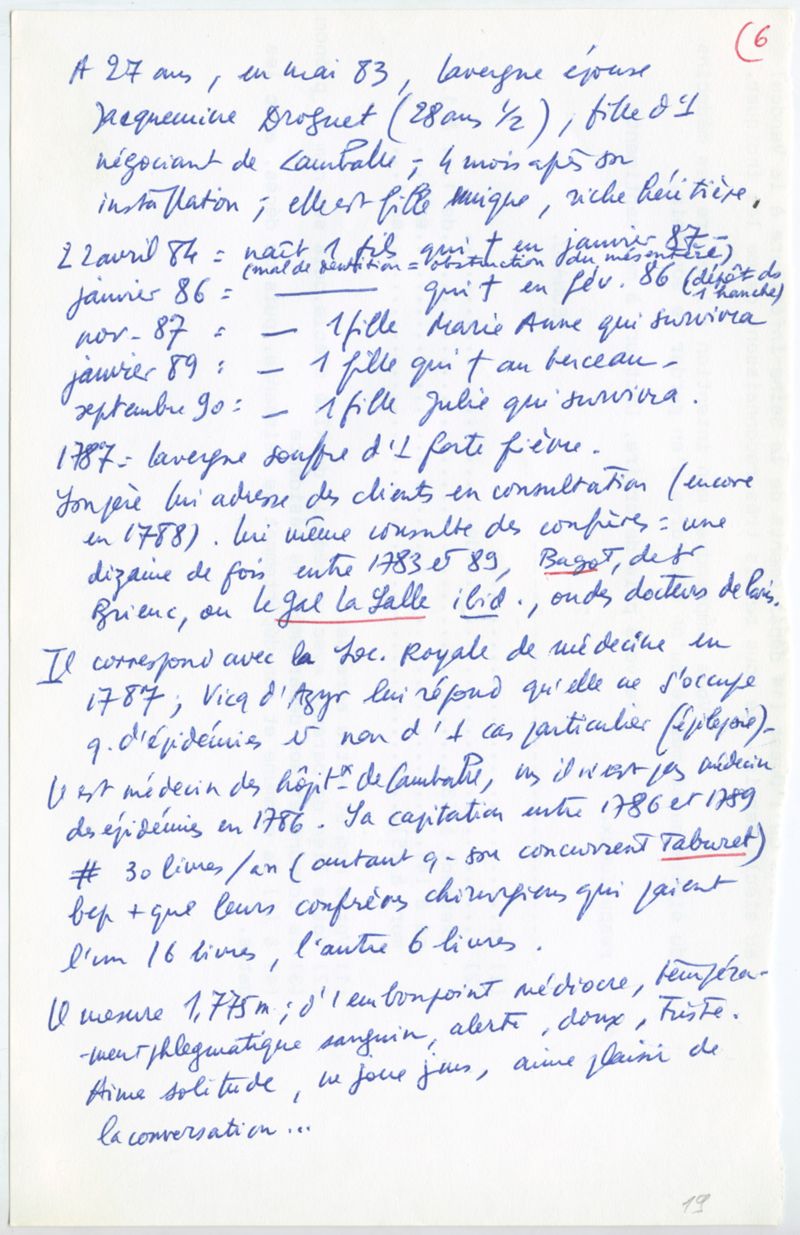 (6
A 27 ans, en mai 83, Lavergne épouse
Jacquemine Droguet (28 ans 1/2), fille d'1
négociant de Lamballe ; 4 mois après son
installation ; elle est fille unique, riche héritière.
22 avril 84 = naît 1 fils qui † en janvier 87 -
(mal de dentition = obstruction du mésentère)
janvier 86 = ——— qui † en fév. 86 (dépôt ds
1 hanche)
nov - 87 = — 1 fille Marie Anne qui survivra
janvier 89 = — 1 fille qui † au berceau -
septembre 90 = — 1 fille Julie qui survivra.
1787 = Lavergne souffre d'1 forte fièvre.
Son père lui adresse des clients en consultation (encore
en 1788). Lui même consulte des confrères = une
dizaine de fois entre 1783 et 89, Bagot, de St
Brieuc, ou Le Gal La Salle ibid., ou des docteurs de Paris.
Il correspond avec la Soc. Royale de médecine en
1787 ; Vicq d'Azyr lui répond qu'elle ne s'occupe
q. d'épidémies et non d'1 cas particulier (épilepsie) -
Il est médecin des hôpitx de Lamballe, ms il n'est pas médecin
des épidémies en 1786. Sa capitation entre 1786 et 1789
# 30 livres/an (autant q - son concurrent Taburet)
bcp + que leurs confrères chirurgiens qui paient
l'un 16 livres, l'autre 6 livres.
Il mesure 1,775 m ; d'1 embonpoint médiocre, tempéra-
-ment phlegmatique sanguin, alerte, doux, triste.
Aime solitude, ne joue jms, aime plaisir de
la conversation...
19